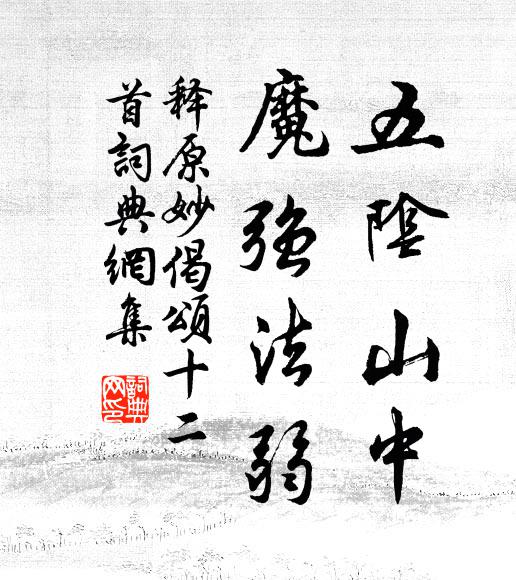 五陰山中
魔強法弱
释原妙偈頌十二
首詞典網集
詞典
网印